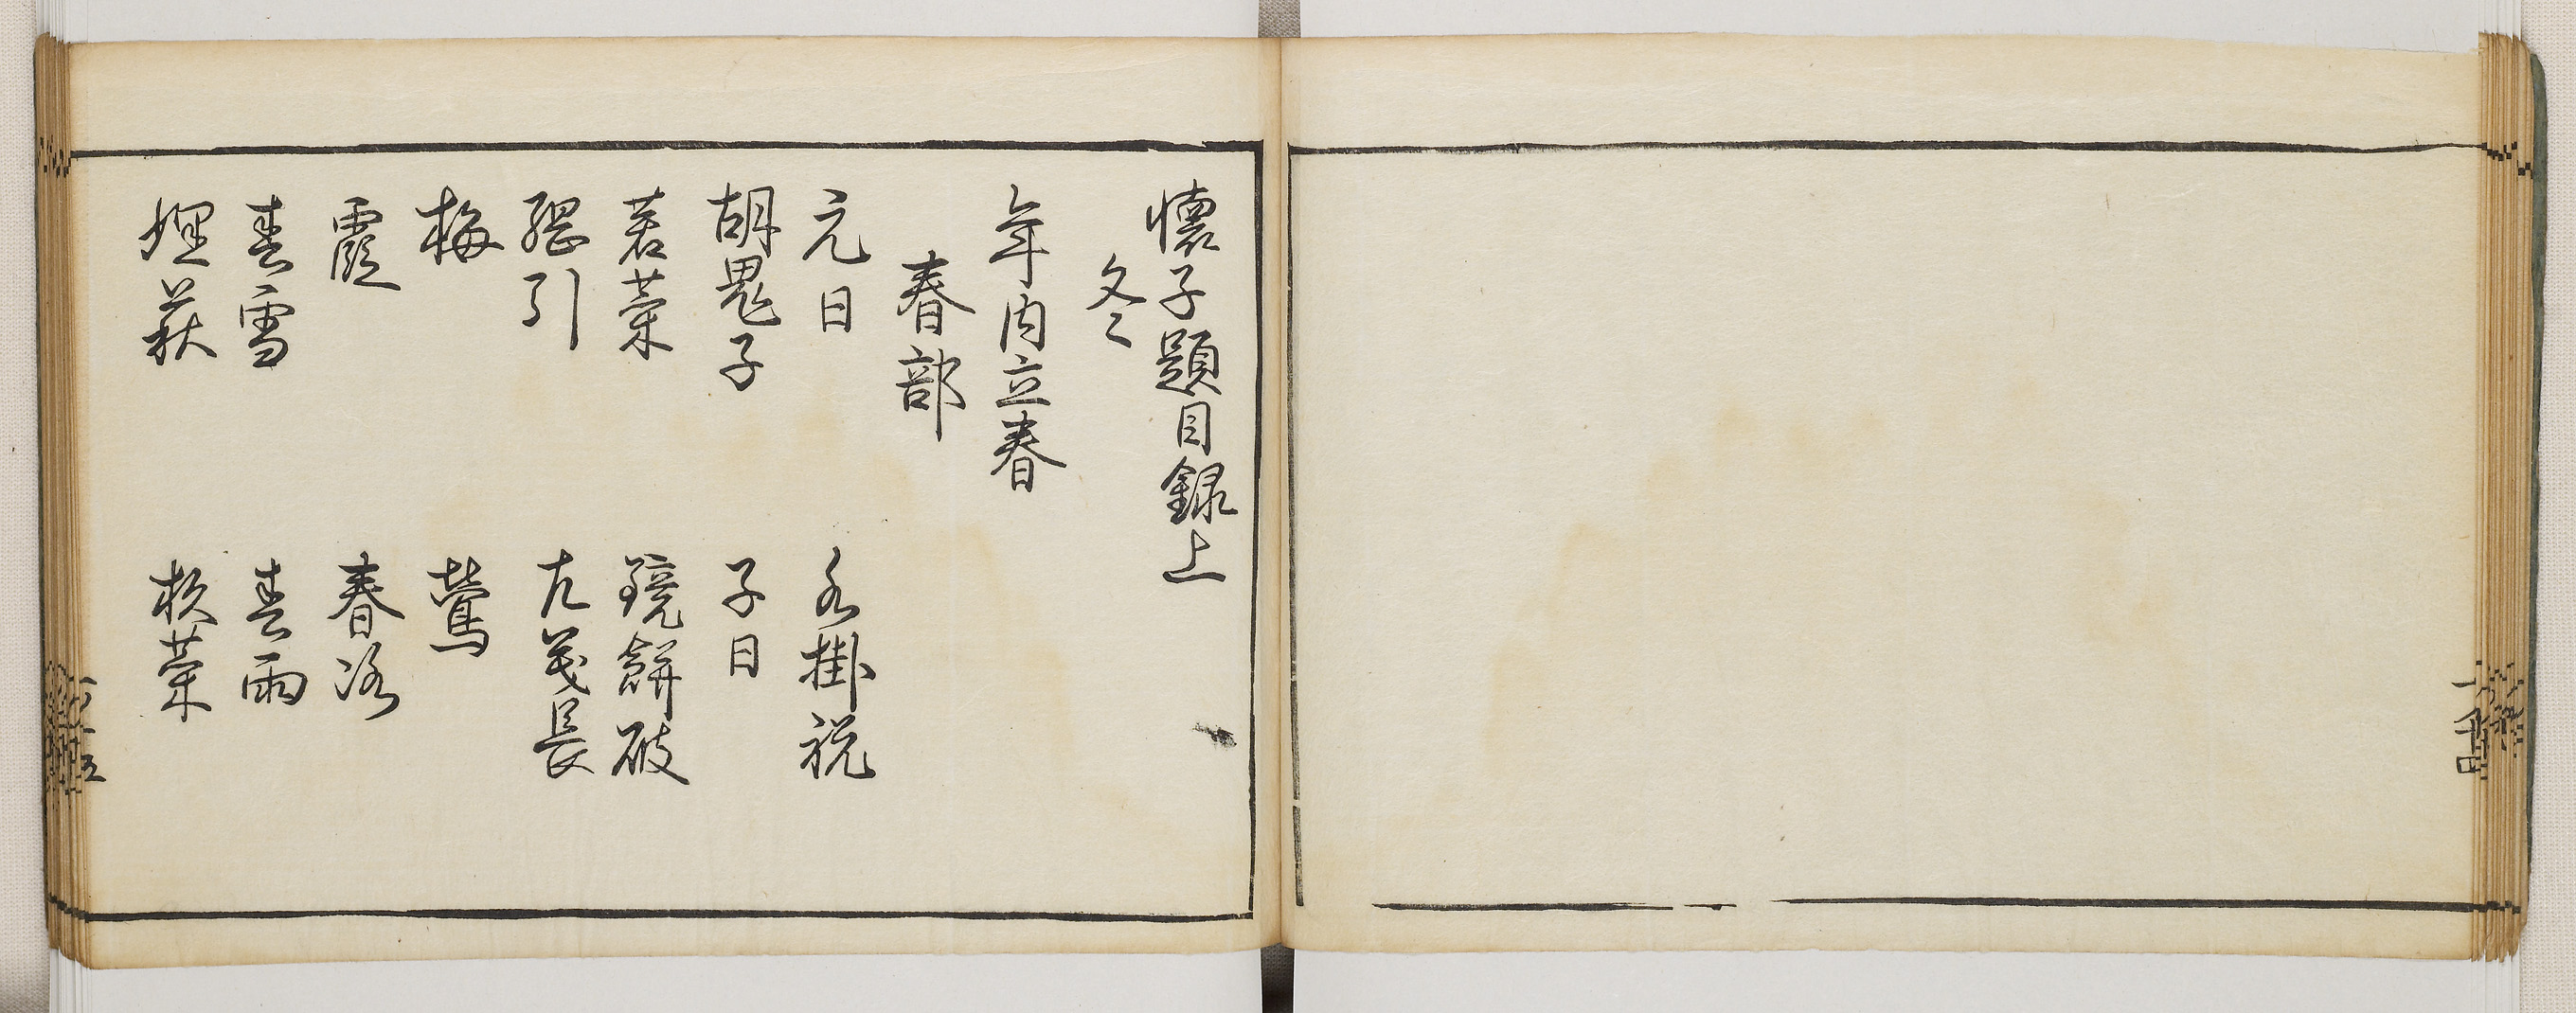 懐子題目録上
冬
年内立春
春部
元日　水掛祝
胡鬼子　子日
若菜　鏡餅破
引　左義長
梅　鶯
霞　春
春雪　春雨
菜